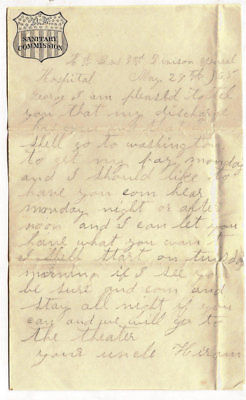 SANITARY
COMMISSION
General
Hospital May 29th 1865
George I am pleasd to tell
you that my discharge
shell go to washington
to get my pay monday
and I should like to
have you com hear
monday night or after
noon and I can let you
have what you wan
I shell start on
morning if I see you
be sure and com and
stay all night if you
can and we will go to
the theater
your uncle Hiram